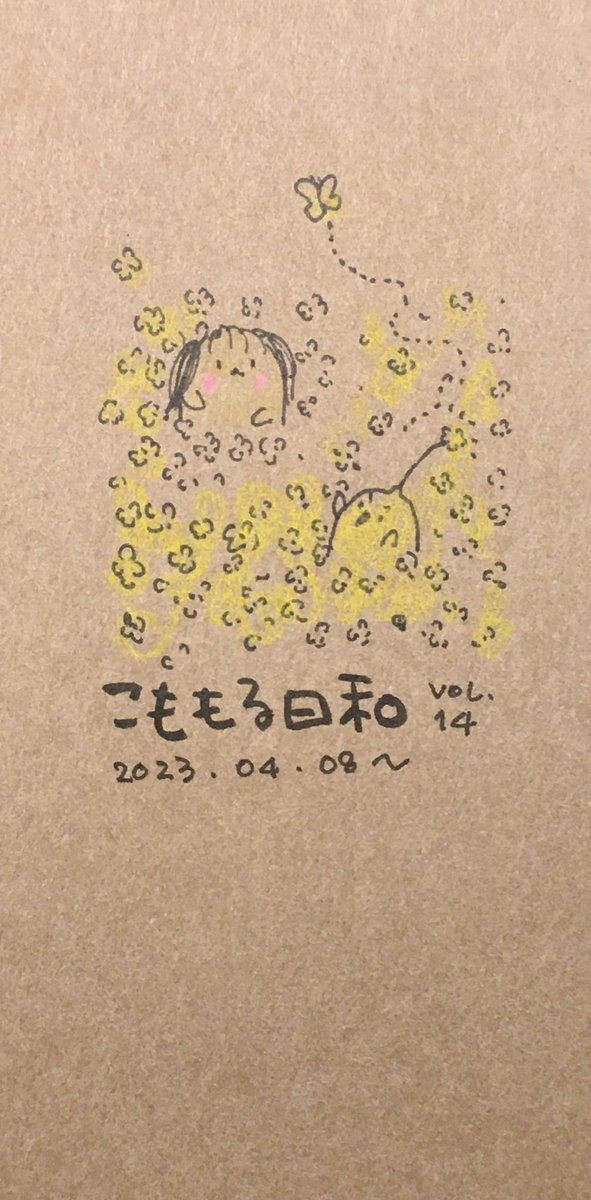 こももる日和 VOL.14
2023.04.08〜